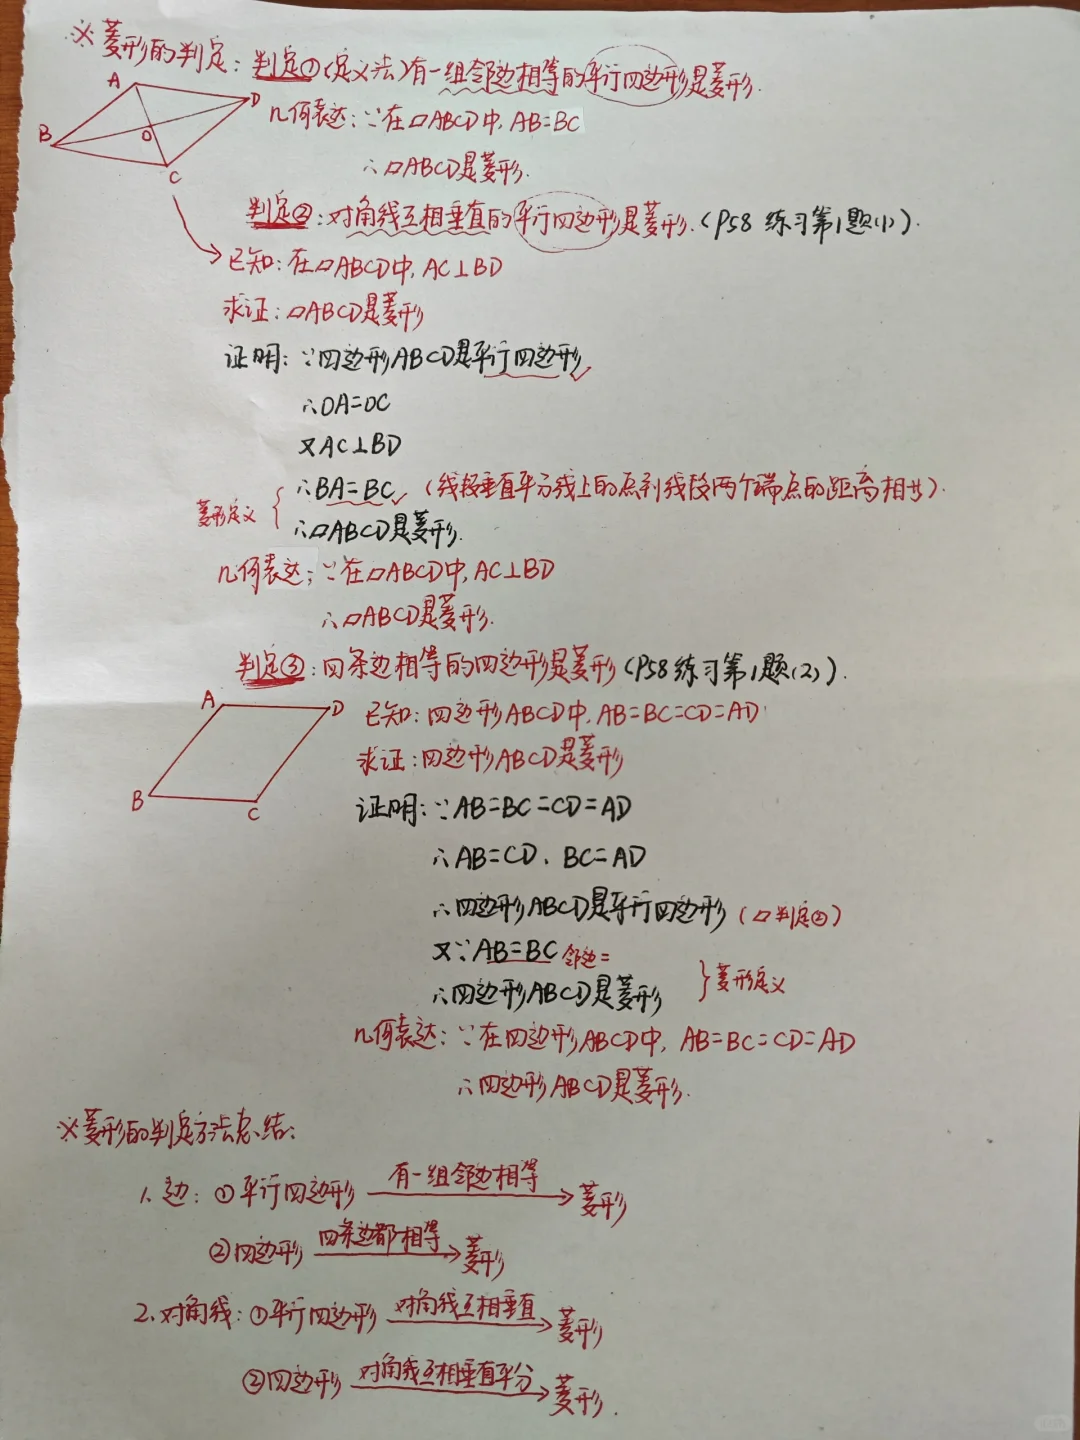 ※菱形的判定：判定①(定义法)有一组邻边相等的平行四边形是菱形.
A
D
B
O
C
几何表达：∵在▱ABCD中,AB=BC
∴▱ABCD是菱形.
判定②：对角线互相垂直的平行四边形是菱形.(P58 练习第1题(1)).
已知：在▱ABCD中,AC⊥BD
求证：▱ABCD是菱形
证明：∵四边形ABCD是平行四边形
∴OA=OC
又AC⊥BD
∴BA=BC (线段垂直平分线上的点到线段两个端点的距离相等).
菱形定义
∴▱ABCD是菱形.
几何表达：∵在▱ABCD中,AC⊥BD
∴▱ABCD是菱形.
判定③：四条边相等的四边形是菱形(P58练习第1题(2)).
A
D
B
C
已知：四边形ABCD中,AB=BC=CD=AD
求证：四边形ABCD是菱形
证明：∵AB=BC=CD=AD
∴AB=CD、BC=AD
∴四边形ABCD是平行四边形(▱判定②)
又∵AB=BC 邻边=
∴四边形ABCD是菱形
菱形定义
几何表达：∵在四边形ABCD中,AB=BC=CD=AD
∴四边形ABCD是菱形.
※菱形的判定方法总结：
1.边：①平行四边形 有一组邻边相等 菱形
②四边形 四条边都相等 菱形
2.对角线：①平行四边形 对角线互相垂直 菱形
②四边形 对角线互相垂直平分 菱形.